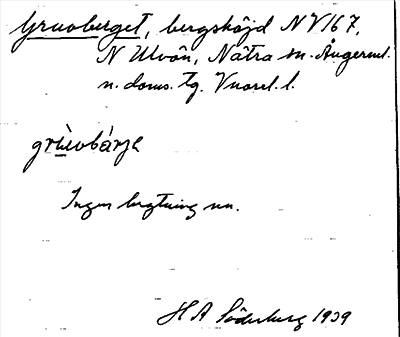 Gruvberget, bergshöjd N V 167,
N Ulvön, Nätra sn. Ångerml.
n. doms. tg. Vnorrl. l.
grùvbárje
Ingen brytning nu.
H A Söderberg 1939